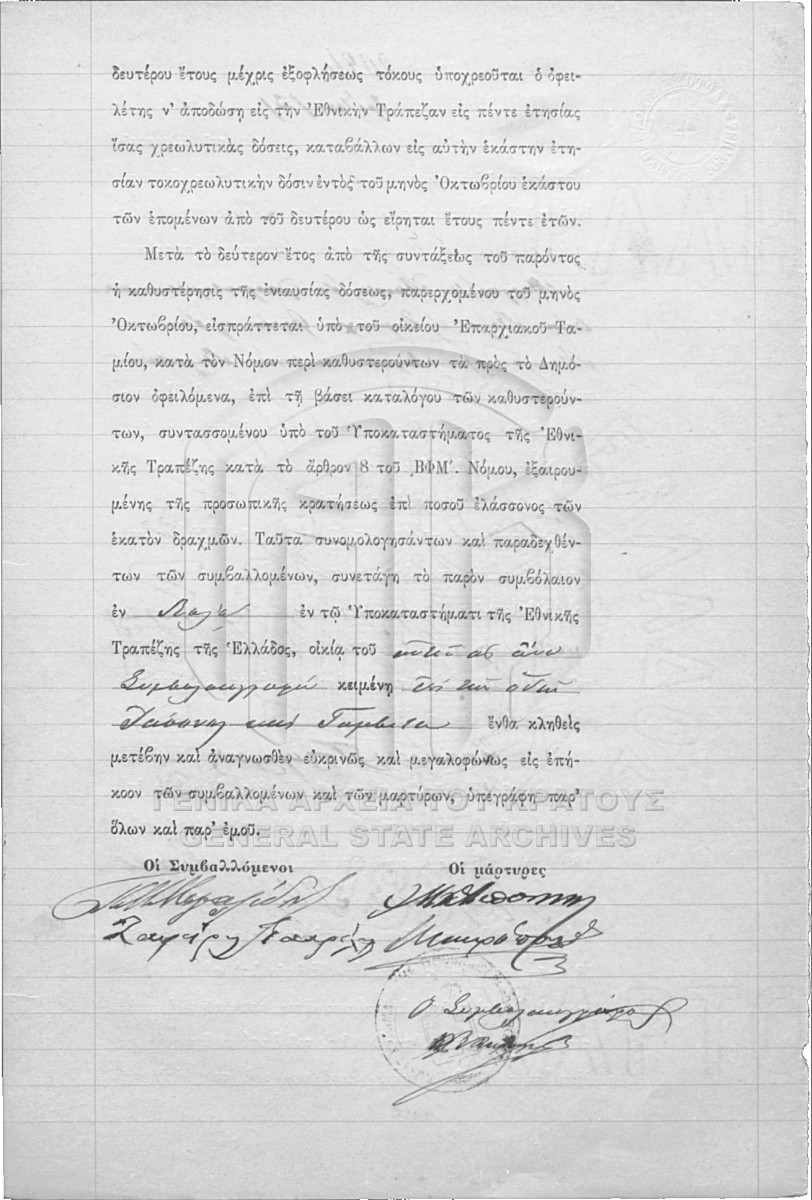 δευτέρου ἔτους μέχρις ἐξοφλήσεως τόκους ὑποχρεοῦται ὁ ὀφει-
λέτης ν' ἀποδώσῃ εἰς τὴν Ἐθνικὴν Τράπεζαν εἰς πέντε ἐτησίας
ἴσας χρεωλυτικὰς δόσεις, καταβάλλων εἰς αὐτὴν ἑκάστην ἐτη-
σίαν τοκοχρεωλυτικὴν δόσιν ἐντὸς τοῦ μηνὸς Ὀκτωβρίου ἑκάστου
τῶν ἑπομένων ἀπὸ τοῦ δευτέρου ὡς εἴρηται ἔτους πέντε ἐτῶν.
Μετὰ τὸ δεύτερον ἔτος ἀπὸ τῆς συντάξεως τοῦ παρόντος
ἡ καθυστέρησις τῆς ἐνιαυσίας δόσεως, παρερχομένου τοῦ μηνὸς
Ὀκτωβρίου, εἰσπράττεται ὑπὸ τοῦ οἰκείου Ἐπαρχιακοῦ Τα-
μίου, κατὰ τὸν Νόμον περὶ καθυστερούντων τὰ πρὸς τὸ Δημό-
σιον ὀφειλόμενα, ἐπὶ τῇ βάσει καταλόγου τῶν καθυστερούν-
των, συντασσομένου ὑπὸ τοῦ Ὑποκαταστήματος τῆς Ἐθνι-
κῆς Τραπέζης κατὰ τὸ ἄρθρον 8 τοῦ ͵ΒΦΜ'. Νόμου, ἐξαιρου-
μένης τῆς προσωπικῆς κρατήσεως ἐπὶ ποσοῦ ἐλάσσονος τῶν
ἑκατὸν δραχμῶν. Ταῦτα συνομολογησάντων καὶ παραδεχθέν-
των τῶν συμβαλλομένων, συνετάγη τὸ παρὸν συμβόλαιον
ἐν Βόλῳ ἐν τῷ Ὑποκαταστήματι τῆς Ἐθνικῆς
Τραπέζης τῆς Ἑλλάδος, οἰκίᾳ τοῦ
κειμένῃ ἐπὶ τῆς ὁδοῦ
Ἰάσονος καὶ Γαμβέτα ἔνθα κληθεὶς
μετέβην καὶ ἀναγνωσθὲν εὐκρινῶς καὶ μεγαλοφώνως εἰς ἐπή-
κοον τῶν συμβαλλομένων καὶ τῶν μαρτύρων, ὑπεγράφη παρ'
ὅλων καὶ παρ' ἐμοῦ.
ΓΕΝΙΚΑ ΑΡΧΕΙΑ ΤΟΥ ΚΡΑΤΟΥΣ
GENERAL STATE ARCHIVES
Οἱ Συμβαλλόμενοι Οἱ μάρτυρες
Ὁ Συμβολαιογράφος